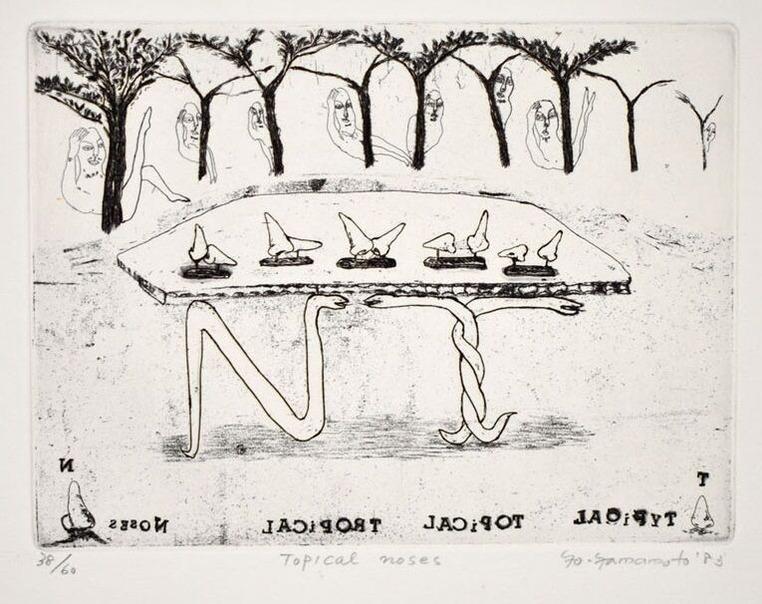 NT
T N
TYPiCAL TOPiCAL TROPiCAL NOSES
38/60 Topical noses Yo. Yamamoto '83